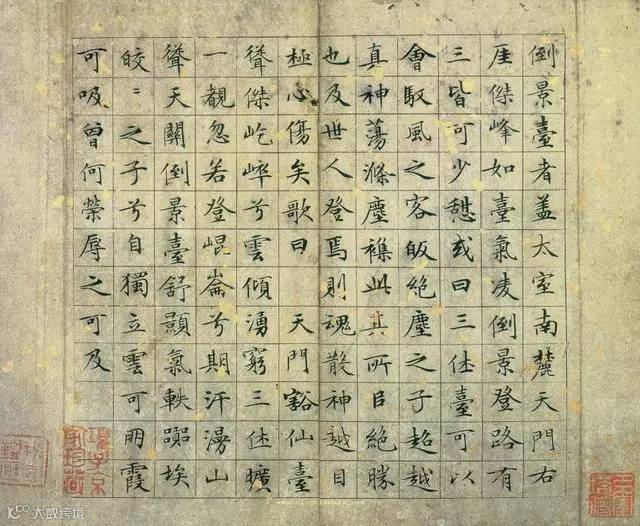 倒景臺者蓋太室南麓天門右
厓傑峰如臺氣凌倒景登路有
三皆可少憇或曰三休臺可以
會馭風之客皈絶塵之子超越
真神蕩滌塵襍此其所𦣞絶勝
也及世人登焉則魂散神越目
極心傷矣歌曰　天門豁仙臺
聳傑屹崒兮雲傾湧窮三休曠
一覩忽若登崐崙兮期汗漫山
聳天關倒景臺舒顥氣軼囂埃
皎〻之子兮自獨立雲可朋霞
可吸曾何榮辱之可及
大歐跨境